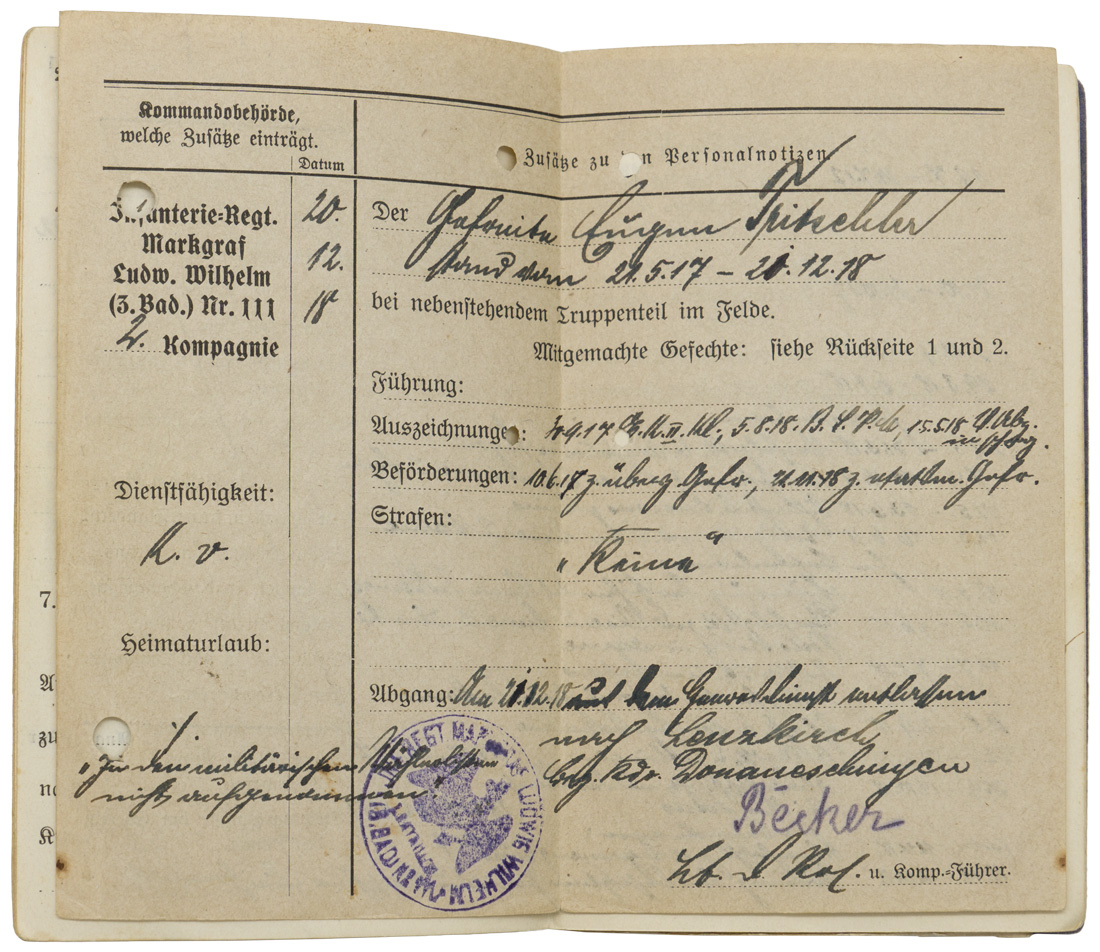 Kommandobehörde,
welche Zusätze einträgt.
Datum
Zusätze zu den Personalnotizen.
Infanterie-Regt.
Markgraf
Ludw. Wilhelm
(3. Bad.) Nr. 111
2. Kompagnie
20.
12.
18
Der Gefreite Eugen Tritschler
stand vom 21.5.17 – 21.12.18
bei nebenstehendem Truppenteil im Felde.
Mitgemachte Gefechte: siehe Rückseite 1 und 2.
Führung:
Auszeichnungen: E.K. II. Kl., 5.8.18. B. 15.5.18
Beförderungen: 10.6.17 z. überz. Gefr., z. Gefr.
Strafen:
„Keine“
Dienstfähigkeit:
K. v.
Heimaturlaub:
Abgang: Am 21.12.18 aus dem Heeresdienst entlassen
nach Lenzkirch
Bez. Kdo. Donaueschingen
„In den militärischen
nicht aufgenommen“
Becker
Lt. d. Res. u. Komp.-Führer.
INF. REGT MARKGRAF LUDWIG WILHELM
(3. BAD) NR 111
7.
A
zu
K